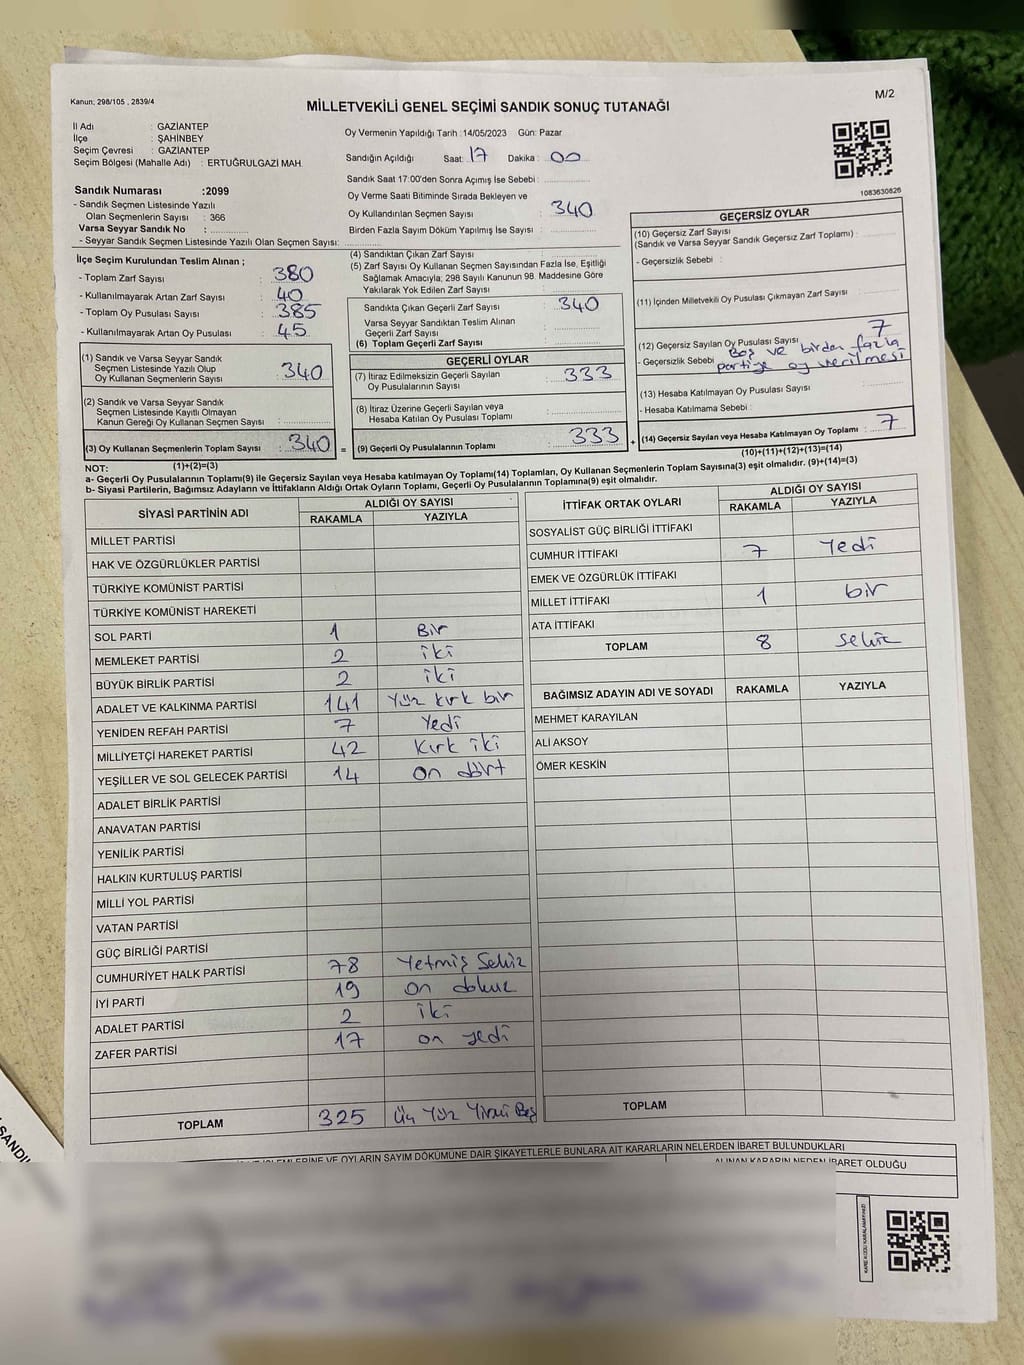 Kanun; 298/105 , 2839/4
MİLLETVEKİLİ GENEL SEÇİMİ SANDIK SONUÇ TUTANAĞI
M/2
İl Adı : GAZİANTEP
İlçe : ŞAHİNBEY
Seçim Çevresi : GAZİANTEP
Seçim Bölgesi (Mahalle Adı) : ERTUĞRULGAZİ MAH.
Oy Vermenin Yapıldığı Tarih :14/05/2023 Gün: Pazar
Sandığın Açıldığı Saat: 17 Dakika : 00
Sandık Saat 17:00'den Sonra Açımış İse Sebebi :
Oy Verme Saati Bitiminde Sırada Bekleyen ve
Oy Kullandırılan Seçmen Sayısı : 340
Birden Fazla Sayım Döküm Yapılmış İse Sayısı :
1083630826
Sandık Numarası :2099
- Sandık Seçmen Listesinde Yazılı
Olan Seçmenlerin Sayısı : 366
Varsa Seyyar Sandık No :
- Seyyar Sandık Seçmen Listesinde Yazılı Olan Seçmen Sayısı:
İlçe Seçim Kurulundan Teslim Alınan ;
- Toplam Zarf Sayısı : 380
- Kullanılmayarak Artan Zarf Sayısı : 40
- Toplam Oy Pusulası Sayısı : 385
- Kullanılmayarak Artan Oy Pusulası : 45
(1) Sandık ve Varsa Seyyar Sandık
Seçmen Listesinde Yazılı Olup
Oy Kullanan Seçmenlerin Sayısı : 340
(2) Sandık ve Varsa Seyyar Sandık
Seçmen Listesinde Kayıtlı Olmayan
Kanun Gereği Oy Kullanan Seçmen Sayısı :
(3) Oy Kullanan Seçmenlerin Toplam Sayısı : 340 =
(1)+(2)=(3)
(4) Sandıktan Çıkan Zarf Sayısı :
(5) Zarf Sayısı Oy Kullanan Seçmen Sayısından Fazla İse, Eşitliği
Sağlamak Amacıyla; 298 Sayılı Kanunun 98. Maddesine Göre
Yakılarak Yok Edilen Zarf Sayısı :
Sandıkta Çıkan Geçerli Zarf Sayısı : 340
Varsa Seyyar Sandıktan Teslim Alınan
Geçerli Zarf Sayısı :
(6) Toplam Geçerli Zarf Sayısı :
GEÇERLİ OYLAR
(7) İtiraz Edilmeksizin Geçerli Sayılan
Oy Pusulalarının Sayısı : 333
(8) İtiraz Üzerine Geçerli Sayılan veya
Hesaba Katılan Oy Pusulası Toplamı :
(9) Geçerli Oy Pusulalarının Toplamı : 333 +
GEÇERSİZ OYLAR
(10) Geçersiz Zarf Sayısı
(Sandık ve Varsa Seyyar Sandık Geçersiz Zarf Toplamı) :
- Geçersizlik Sebebi :
(11) İçinden Milletvekili Oy Pusulası Çıkmayan Zarf Sayısı :
(12) Geçersiz Sayılan Oy Pusulası Sayısı : 7
- Geçersizlik Sebebi : Boş ve birden fazla
partiye oy verilmesi
(13) Hesaba Katılmayan Oy Pusulası Sayısı :
- Hesaba Katılmama Sebebi :
(14) Geçersiz Sayılan veya Hesaba Katılmayan Oy Toplamı : 7
(10)+(11)+(12)+(13)=(14)
NOT:
a- Geçerli Oy Pusulalarının Toplamı(9) ile Geçersiz Sayılan veya Hesaba katılmayan Oy Toplamı(14) Toplamları, Oy Kullanan Seçmenlerin Toplam Sayısına(3) eşit olmalıdır. (9)+(14)=(3)
b- Siyasi Partilerin, Bağımsız Adayların ve İttifakların Aldığı Ortak Oyların Toplamı, Geçerli Oy Pusulalarının Toplamına(9) eşit olmalıdır.
SİYASİ PARTİNİN ADI ALDIĞI OY SAYISI
RAKAMLA YAZIYLA
MİLLET PARTİSİ
HAK VE ÖZGÜRLÜKLER PARTİSİ
TÜRKİYE KOMÜNİST PARTİSİ
TÜRKİYE KOMÜNİST HAREKETİ
SOL PARTİ 1 Bir
MEMLEKET PARTİSİ 2 iki
BÜYÜK BİRLİK PARTİSİ 2 iki
ADALET VE KALKINMA PARTİSİ 141 Yüz kırk bir
YENİDEN REFAH PARTİSİ 7 Yedi
MİLLİYETÇİ HAREKET PARTİSİ 42 Kırk iki
YEŞİLLER VE SOL GELECEK PARTİSİ 14 on dört
ADALET BİRLİK PARTİSİ
ANAVATAN PARTİSİ
YENİLİK PARTİSİ
HALKIN KURTULUŞ PARTİSİ
MİLLİ YOL PARTİSİ
VATAN PARTİSİ
GÜÇ BİRLİĞİ PARTİSİ
CUMHURİYET HALK PARTİSİ 78 Yetmiş Sekiz
İYİ PARTİ 19 on dokuz
ADALET PARTİSİ 2 iki
ZAFER PARTİSİ 17 on yedi
TOPLAM 325 Üç Yüz Yirmi Beş
İTTİFAK ORTAK OYLARI ALDIĞI OY SAYISI
RAKAMLA YAZIYLA
SOSYALİST GÜÇ BİRLİĞİ İTTİFAKI
CUMHUR İTTİFAKI 7 Yedi
EMEK VE ÖZGÜRLÜK İTTİFAKI
MİLLET İTTİFAKI 1 bir
ATA İTTİFAKI
TOPLAM 8 sekiz
BAĞIMSIZ ADAYIN ADI VE SOYADI RAKAMLA YAZIYLA
MEHMET KARAYILAN
ALİ AKSOY
ÖMER KESKİN
TOPLAM
İŞLEMLERİNE VE OYLARIN SAYIM DÖKÜMÜNE DAİR ŞİKAYETLERLE BUNLARA AİT KARARLARIN NELERDEN İBARET BULUNDUKLARI
ALINAN KARARIN NEDEN İBARET OLDUĞU
KARE KODU KARALAMAYINIZ!
SANDI